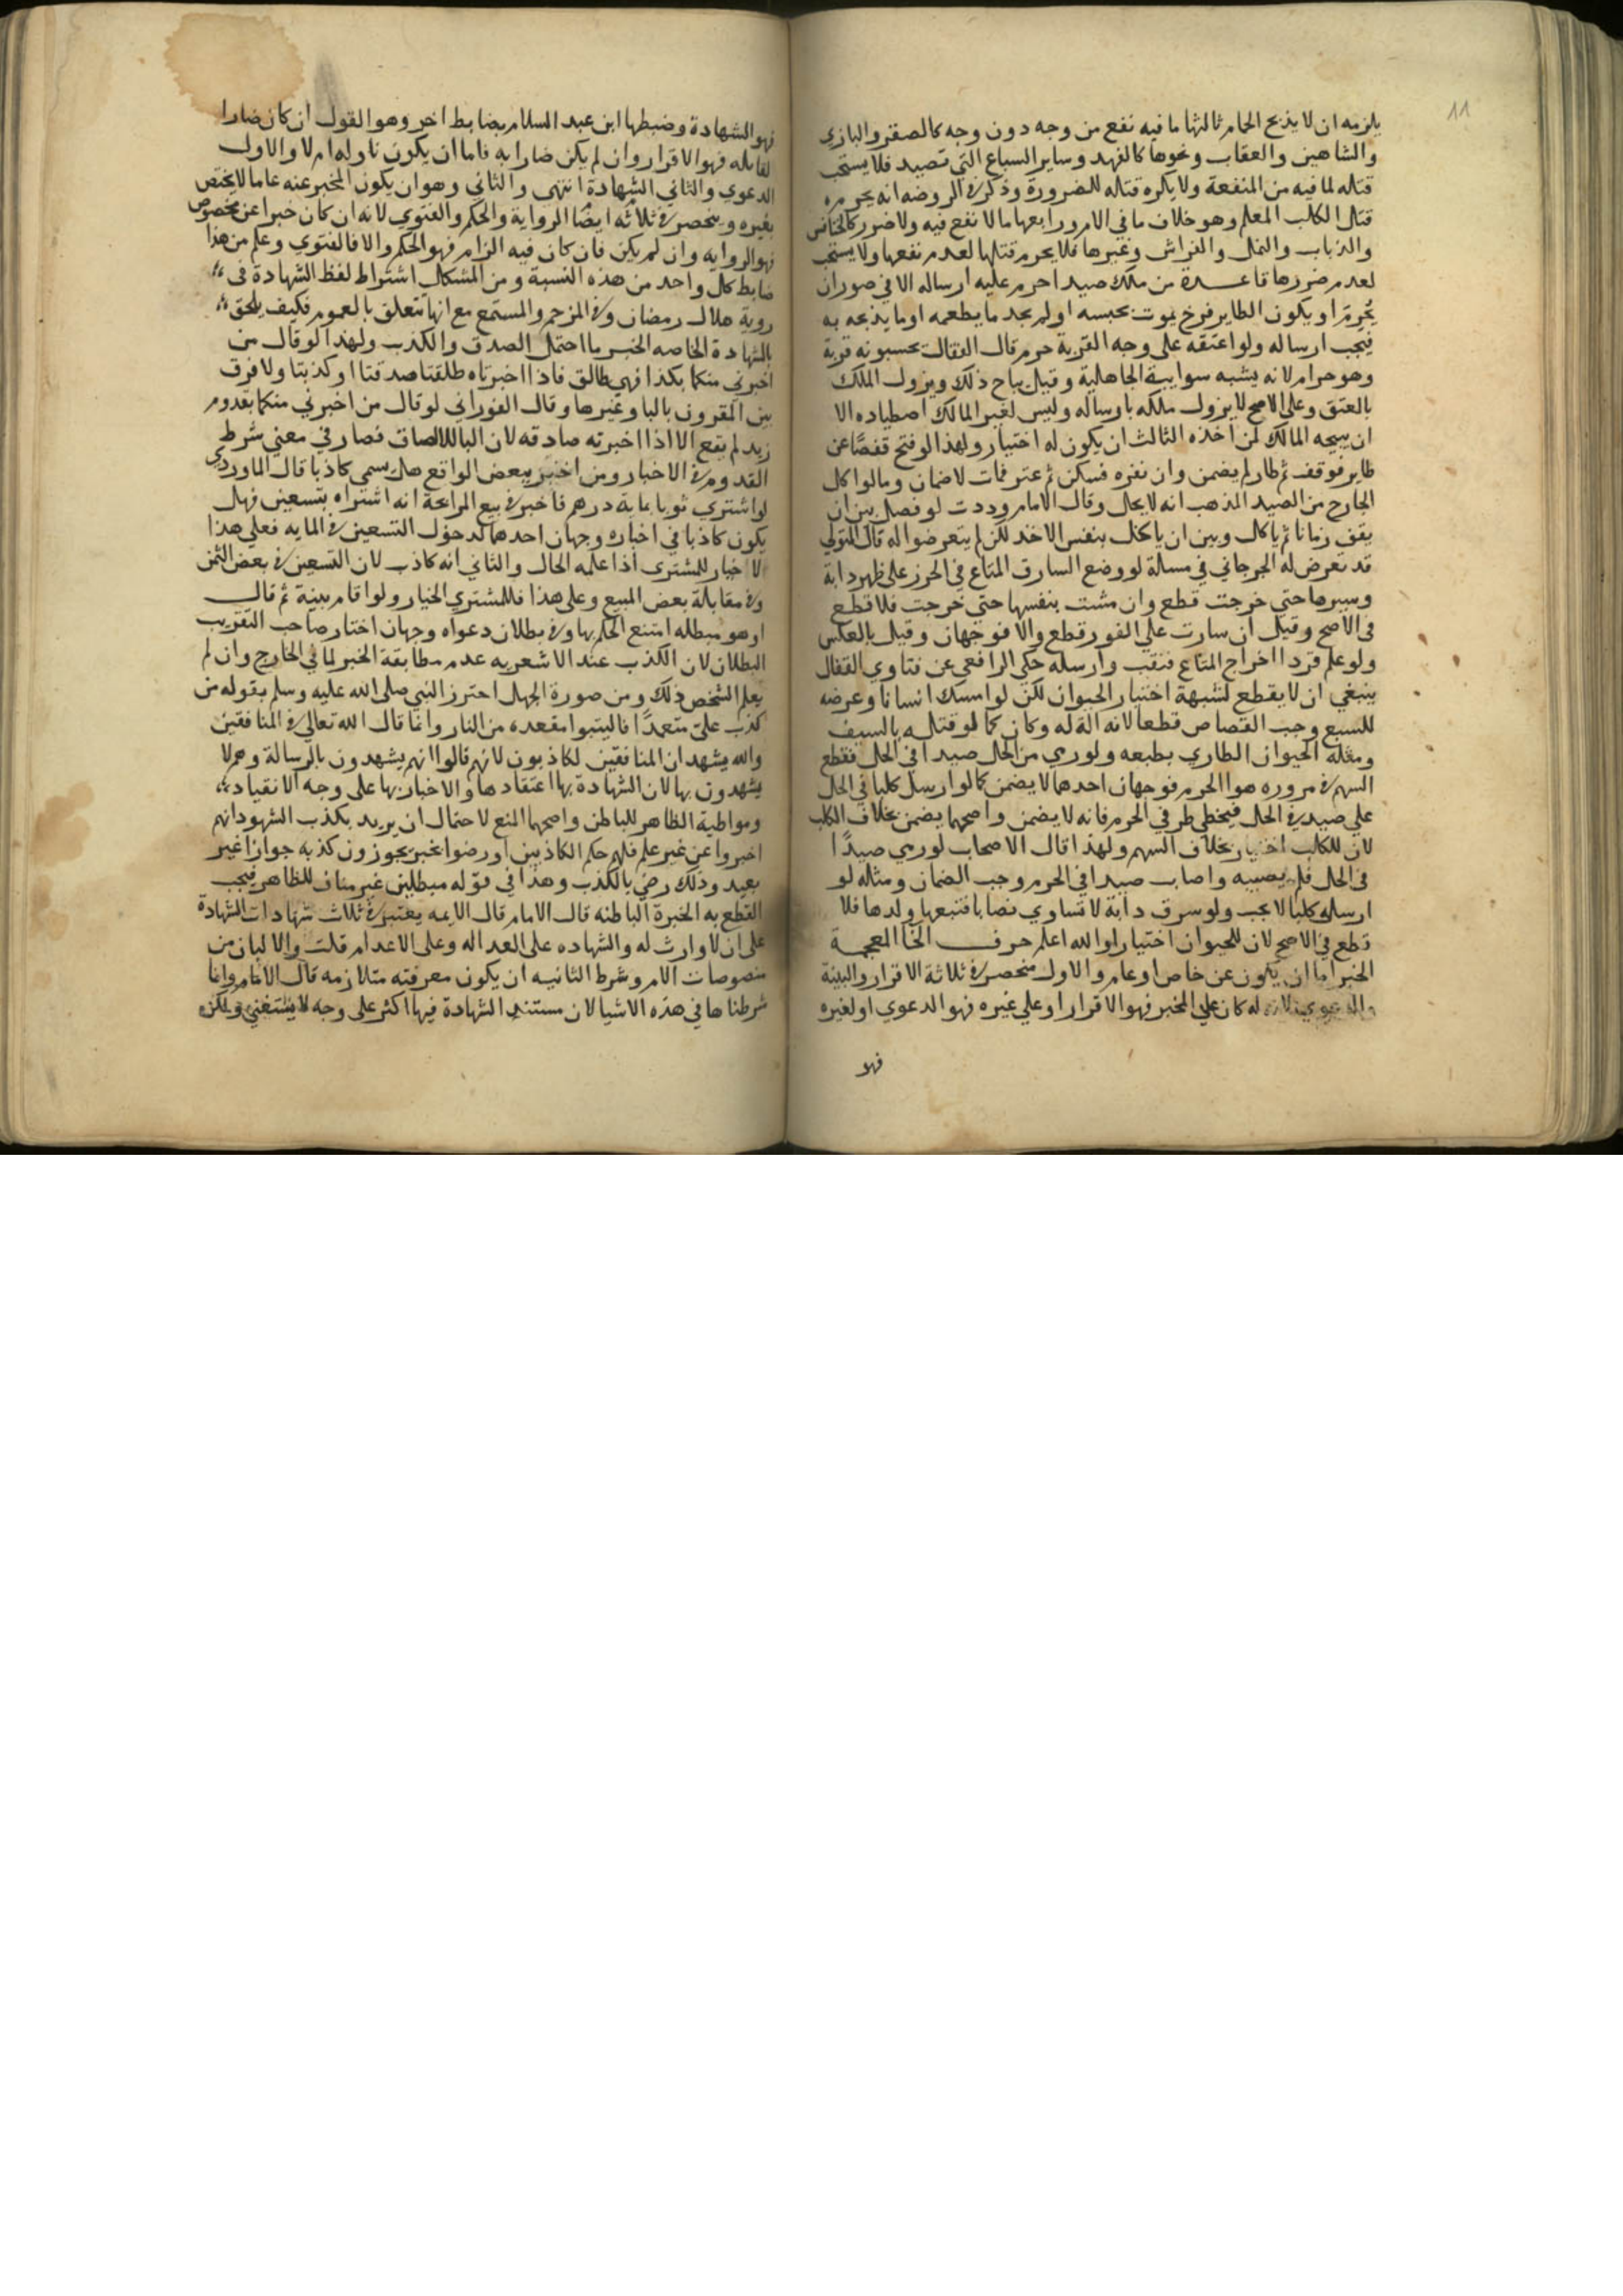 ١١
يلزمه ان لا يذبح الحمام ثالثها ما فيه نفع من وجه دون وجه كالصقر والبازي
والشاهين والعقاب ونحوها كالفهد وساير السباع التي تصيد فلا يستحب
قتله لما فيه من المنفعة ولا يكره قتله للضرورة وذكر في الروضه انه يحرم
قتل الكلب المعلم وهو خلاف ما في الام ورابعها ما لا نفع فيه ولا ضرر كالخنافس
والذباب والنمل والفراش وغيرها فلا يحرم قتلها لعدم نفعها ولا يستحب
لعدم ضررها قاعدة من ملك صيدا حرم عليه ارساله الا في صور ان
يحرم او يكون الطاير فرخ يموت بحبسه او لم يجد ما يطعمه او ما يذبحه به
فيجب ارساله ولو اعتقه على وجه القربة حرم قال القفال يحسبونه قربة
وهو حرام لانه يشبه سوايب الجاهلية وقيل يباح ذلك ويزول الملك
بالعتق وعلى الاصح لا يزول ملكه بارساله وليس لغير المالك اصطياده الا
ان يبيحه المالك لمن اخذه الثالث ان يكون له اختيار ولهذا لو فتح قفصا عن
طاير فوقف ثم طار لم يضمن وان نفره فسكن ثم عثر فمات لا ضمان وما لو اكل
الجارح من الصيد المذهب انه لا يحل وقال الامام وددت لو فصل بين ان
يقف زمانا ثم ياكل وبين ان ياكل بنفس الاخذ لكن لم يتعرضوا له قال المتولي
قد تعرض له الجرجاني في مسالة لو وضع السارق المتاع في الحرز على ظهر دابة
وسيرها حتي خرجت قطع وان مشت بنفسها حتي خرجت فلا قطع
في الاصح وقيل ان سارت علي الفور قطع والا فوجهان وقيل بالعكس
ولو علم قردا اخراج المتاع فنقب وارسله حكي الرافعي عن فتاوي القفال
ينبغي ان لا يقطع لشبهة اختيار الحيوان لكن لو امسك انسانا وعرضه
للسبع وجب القصاص قطعا لانه الة له وكان كما لو قتله بالسيف
ومثله الحيوان الطاري بطبعه ولو رمي من الحل صيدا في الحل فقطع
السهم في مروره هوا الحرم فوجهان احدهما لا يضمن كما لو ارسل كلبا في الحل
علي صيد في الحل فيخطي طرف الحرم فانه لا يضمن واصحهما يضمن بخلاف الكلب
لان للكلب اختيار بخلاف السهم ولهذا قال الاصحاب لو رمي صيدا
في الحل فلم يصيبه واصاب صيدا في الحرم وجب الضمان ومثله لو
ارسل كلبا لا يجب ولو سرق دابة لا تساوي نصابا فتبعها ولدها فلا
قطع في الاصح لان للحيوان اختيارا والله اعلم حرف الخا المعجمة
الخبر اما ان يكون عن خاص او عام والاول منحصر في ثلاثة الاقرار والبينة
والدعوي لانه كان علي المخبر فهو الاقرار او علي غيره فهو الدعوي او لغيره
فهو
فهو الشهادة وضبطها ابن عبد السلام بضابط اخر وهو القول ان كان ضارا
لقايله فهو الاقرار وان لم يكن ضارا به فاما ان يكون له ام لا والاول
الدعوي والثاني الشهادة انتهى والثاني وهو ان يكون المخبر عنه عاما لا يختص
بغيره وينحصر في ثلاثه ايضا الرواية والحكم والفتوي لانه ان كان خبرا عن مخصوص
فهو الروايه وان لم يكن فان كان فيه الزام فهو الحكم والا فالفتوي وعلم من هذا
ضابط كل واحد من هذه النسبة ومن المشكل اشتراط لفظ الشهادة في
روية هلال رمضان وفي المزحم والمستمع مع انها تتعلق بالعموم فكيف يلحق
بالشهادة الخاصه الخبر ما احتمل الصدق والكذب ولهذا لو قال من
اخبرني منكما بكذا فهي طالق فاذا اخبرتاه طلقتا صدقتا او كذبتا ولا فرق
بين المقرون بالبا وغيرها وقال الفوراني لو قال من اخبرني منكما بقدوم
زيد لم يقع الا اذا اخبرته صادقه لان البا للالصاق فصار في معني شرط
القدوم في الاخبار ومن اخبر ببعض الواقع هل يسمى كاذبا قال الماوردي
لو اشتري ثوبا بماية درهم فاخبر في بيع المرابحة انه اشتراه بتسعين فهل
يكون كاذبا في اخباره وجهان احدهما لدخول التسعين في المايه فعلى هذا
لا خيار للمشتري اذا علم الحال والثاني انه كاذب لان التسعين في بعض الثمن
وفي مقابلة بعض المبيع وعلى هذا فللمشتري الخيار ولو اقام بينة ثم قال
او هو مبطله امتنع الحكم بها وفي بطلان دعواه وجهان اختار صاحب التقريب
البطلان لان الكذب عند الاشعريه عدم مطابقة الخبر لما في الخارج وان لم
يعلم الشخص ذلك ومن صورة الجهل احترز النبي صلى الله عليه وسلم بقوله من
كذب علي متعمدا فاليتبوا مقعده من النار وانما قال الله تعالى في المنافقين
والله يشهد ان المنافقين لكاذبون لانهم قالوا انهم يشهدون بالرسالة وهم لا
يشهدون بها لان الشهادة بها اعتقادها والاخبار بها على وجه الانقياد
ومواطية الظاهر للباطن واصحهما المنع لاحتمال ان يريد بكذب الشهود انهم
اخبروا عن غير علم فلهم حكم الكاذبين او رضوا بخبر يجوزون كذبه جوازا غير
بعيد وذلك رضي بالكذب وهذا في قوله مبطلين غير مناف للظاهر فيجب
القطع به الخبرة الباطنه قال الامام قال الايمه يعتبر في ثلاث شهادات الشهادة
على ان لا وارث له والشهاده على العداله وعلى الاعدام قلت والاولان من
منصوصات الام وشرط الثانيه ان يكون معرفته متلازمه قال الامام وانما
شرطناها في هذه الاشيا لان مستند الشهادة فيها اكثر على وجه لا يستغني ولكنه